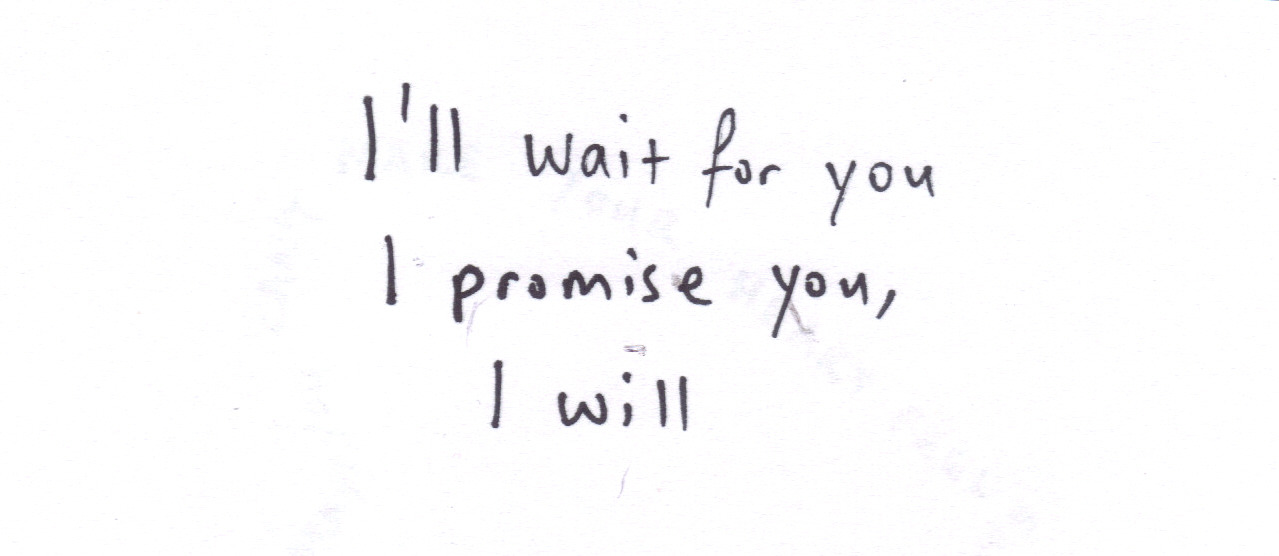 I'll wait for you
I promise you,
I will